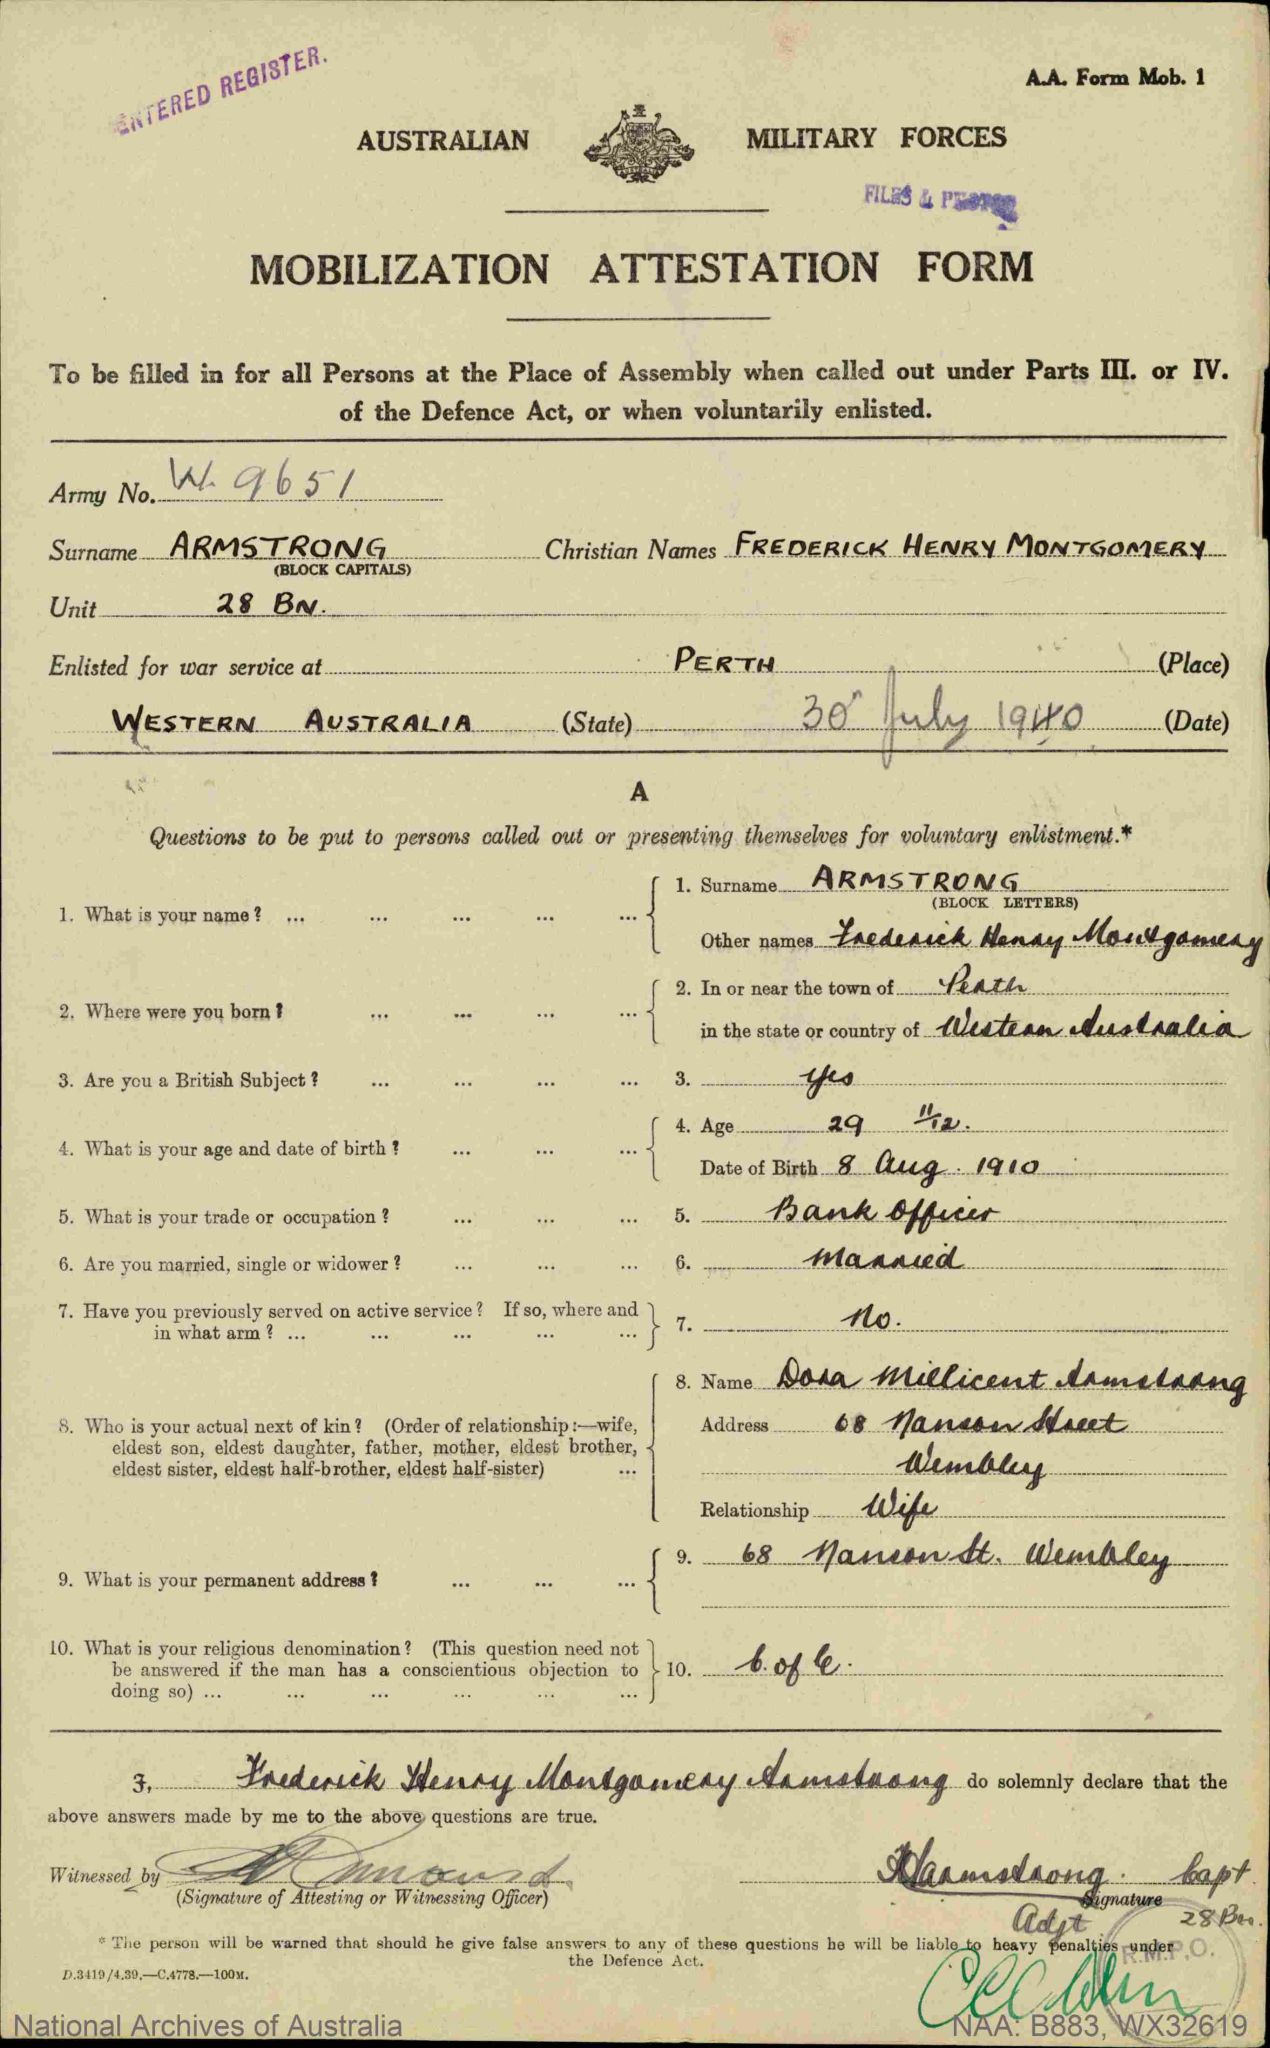 ENTERED REGISTER.
A.A. Form Mob. 1
AUSTRALIAN MILITARY FORCES
FILES &
MOBILIZATION ATTESTATION FORM
To be filled in for all Persons at the Place of Assembly when called out under Parts III. or IV.
of the Defence Act, or when voluntarily enlisted.
Army No. W. 9651
Surname ARMSTRONG Christian Names FREDERICK HENRY MONTGOMERY
(BLOCK CAPITALS)
Unit 28 BN.
Enlisted for war service at PERTH (Place)
WESTERN AUSTRALIA (State) 30 July 1940 (Date)
A
Questions to be put to persons called out or presenting themselves for voluntary enlistment.*
1. What is your name? ... ... ... ... ...
1. Surname ARMSTRONG
(BLOCK LETTERS)
Other names Frederick Henry Montgomery
2. Where were you born? ... ... ... ...
2. In or near the town of Perth
in the state or country of Western Australia
3. Are you a British Subject? ... ... ... ... 3. Yes
4. What is your age and date of birth? ... ... ...
4. Age 29 11/12.
Date of Birth 8 Aug. 1910
5. What is your trade or occupation? ... ... ... 5. Bank Officer
6. Are you married, single or widower? ... ... ... 6. Married
7. Have you previously served on active service? If so, where and
in what arm? ... ... ... ... ...
7. No.
8. Who is your actual next of kin? (Order of relationship:—wife,
eldest son, eldest daughter, father, mother, eldest brother,
eldest sister, eldest half-brother, eldest half-sister) ...
8. Name Dora Millicent Armstrong
Address 68 Nanson Street
Wembley
Relationship Wife
9. What is your permanent address? ... ... ...
9. 68 Nanson St. Wembley
10. What is your religious denomination? (This question need not
be answered if the man has a conscientious objection to
doing so) ... ... ... ... ... ...
10. C. of E.
I, Frederick Henry Montgomery Armstrong do solemnly declare that the
above answers made by me to the above questions are true.
Witnessed by
(Signature of Attesting or Witnessing Officer)
Armstrong. Capt
Signature
Adjt 28 Bn.
* The person will be warned that should he give false answers to any of these questions he will be liable to heavy penalties under
the Defence Act.
R.M.P.O.
D.3419/4.39.—C.4778.—100M.
National Archives of Australia
NAA: B883, WX32619